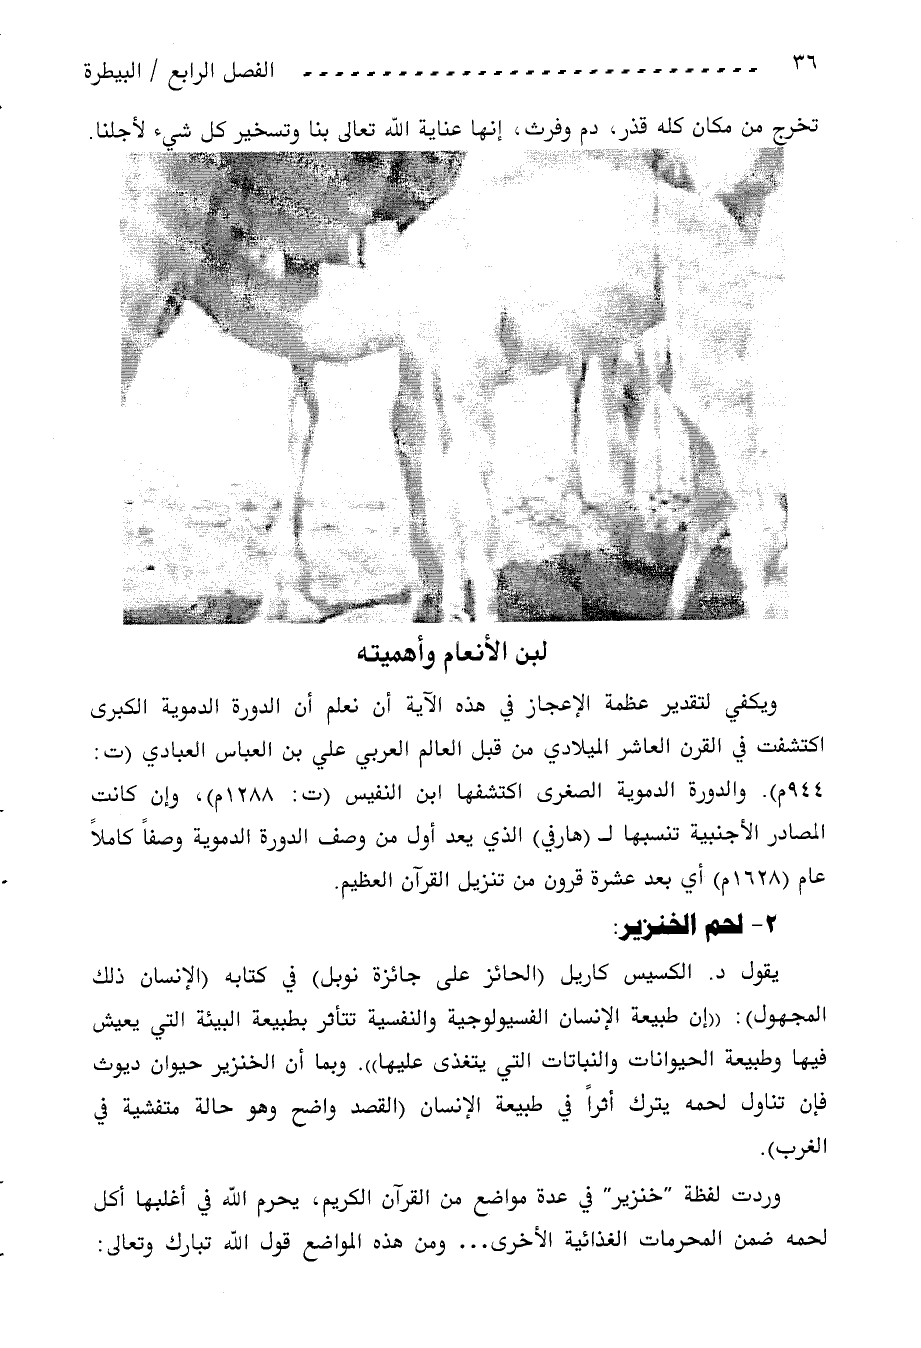 ٣٦ الفصل الرابع / البيطرة
تخرج من مكان كله قذر، دم وفرث، إنها عناية الله تعالى بنا وتسخير كل شيء لأجلنا.
لبن الأنعام وأهميته
ويكفي لتقدير عظمة الإعجاز في هذه الآية أن نعلم أن الدورة الدموية الكبرى
اكتشفت في القرن العاشر الميلادي من قبل العالم العربي علي بن العباس العبادي (ت:
٩٤٤م). والدورة الدموية الصغرى اكتشفها ابن النفيس (ت: ١٢٨٨م)، وإن كانت
المصادر الأجنبية تنسبها لـ (هارفي) الذي يعد أول من وصف الدورة الدموية وصفاً كاملاً
عام (١٦٢٨م) أي بعد عشرة قرون من تنزيل القرآن العظيم.
٢- لحم الخنزير:
يقول د. الكسيس كاريل (الحائز على جائزة نوبل) في كتابه (الإنسان ذلك
المجهول): ((إن طبيعة الإنسان الفسيولوجية والنفسية تتأثر بطبيعة البيئة التي يعيش
فيها وطبيعة الحيوانات والنباتات التي يتغذى عليها)). وبما أن الخنزير حيوان ديوث
فإن تناول لحمه يترك أثراً في طبيعة الإنسان (القصد واضح وهو حالة متفشية في
الغرب).
وردت لفظة "خنزير" في عدة مواضع من القرآن الكريم، يحرم الله في أغلبها أكل
لحمه ضمن المحرمات الغذائية الأخرى... ومن هذه المواضع قول الله تبارك وتعالى: